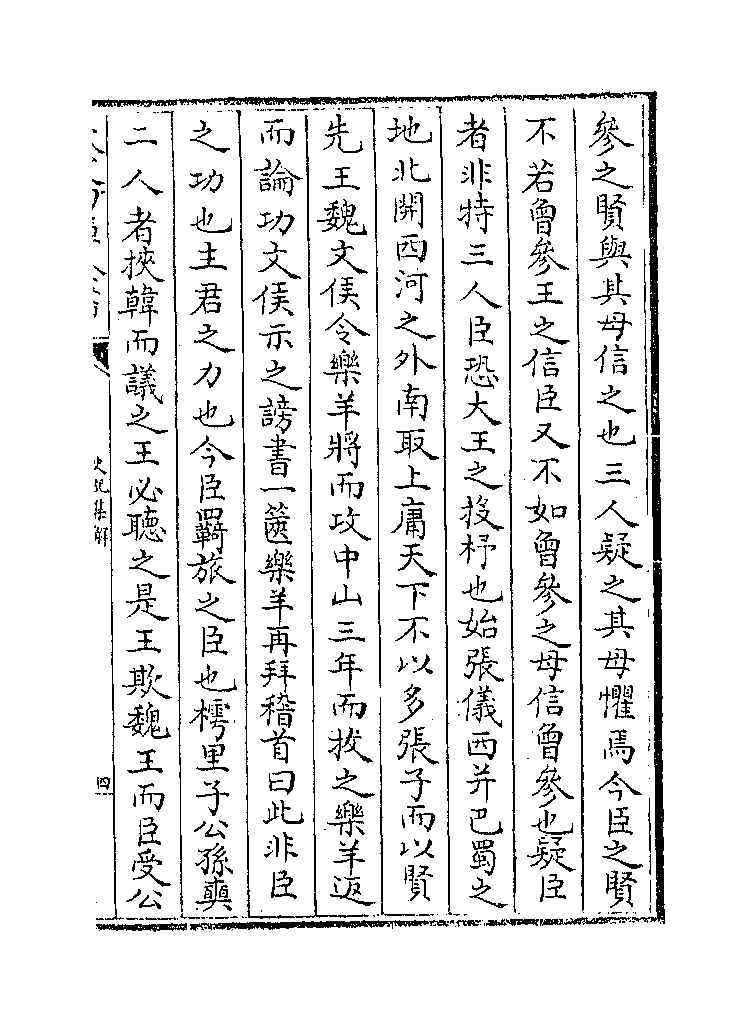 參之賢與其母信之也三人疑之其母懼焉今臣之賢
不若曾參王之信臣又不如曾參之母信曾參也疑臣
者非特三人臣恐大王之投杼也始張儀西并巴蜀之
地北開西河之外南取上庸天下不以多張子而以賢
先王魏文侯令樂羊將而攻中山三年而拔之樂羊返
而論功文侯示之謗書一篋樂羊再拜稽首曰此非臣
之功也主君之力也今臣羈旅之臣也樗里子公孫奭
二人者挾韓而議之王必聽之是王欺魏王而臣受公
史記集解
四